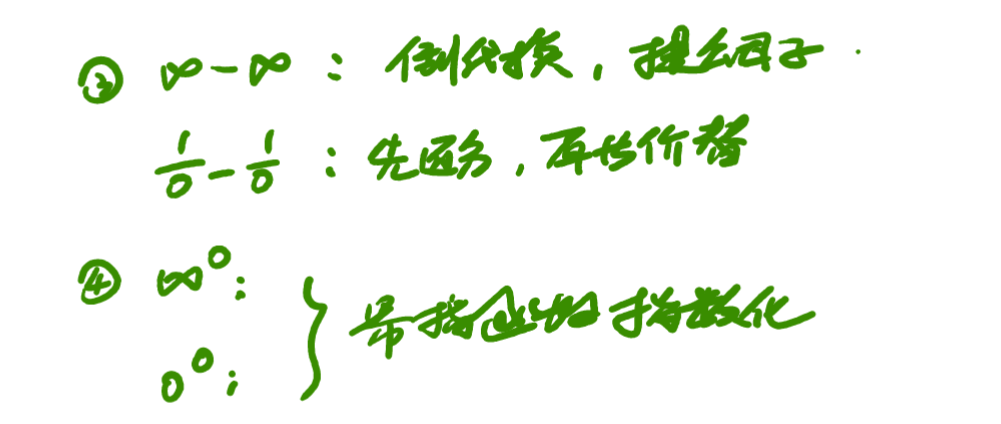 ③ ∞-∞ : 倒代换,提公因子.
1/0 - 1/0 : 先通分,再等价替
④ ∞^0;
0^0;
} 幂指函数 指数化